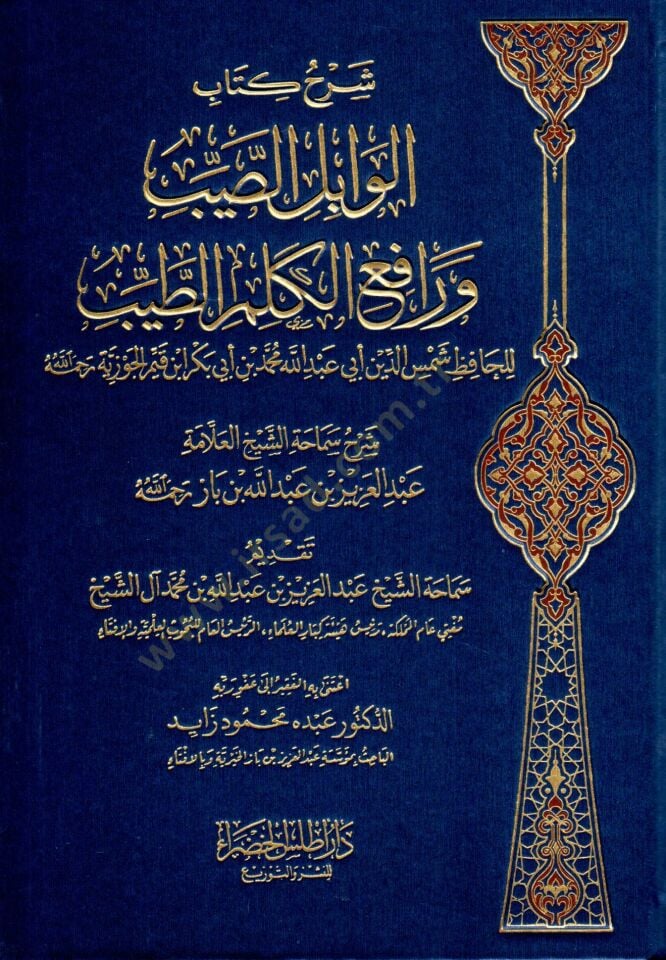 شَرْحُ كِتَابِ
الوَابِلِ الصَّيِّبِ
وَرَافِعِ الكَلِمِ الطَّيِّبِ
لِلحَافِظِ شَمْسِ الدِّينِ أَبِي عَبْدِ اللهِ مُحَمَّدِ بْنِ أَبِي بَكْرِ ابْنِ قَيِّمِ الجَوْزِيَّةِ رَحِمَهُ اللهُ
شَرْحُ سَمَاحَةِ الشَّيْخِ العَلَّامَةِ
عَبْدِ العَزِيزِ بْنِ عَبْدِ اللهِ بْنِ بَازٍ رَحِمَهُ اللهُ
تَقْدِيمُ
سَمَاحَةِ الشَّيْخِ عَبْدِ العَزِيزِ بْنِ عَبْدِ اللهِ بْنِ مُحَمَّدٍ آلِ الشَّيْخِ
مُفْتِي عَامِ المَمْلَكَةِ، وَرَئِيسِ هَيْئَةِ كِبَارِ العُلَمَاءِ، الرَّئِيسِ العَامِ لِلبُحُوثِ العِلْمِيَّةِ وَالإِفْتَاءِ
اعْتَنَى بِهِ الفَقِيرُ إِلَى عَفْوِ رَبِّهِ
الدُّكْتُورُ عَبْدُه مَحْمُود زَايِد
البَاحِثُ بِمُؤَسَّسَةِ عَبْدِ العَزِيزِ بْنِ بَازٍ الخَيْرِيَّةِ وَبِالإِفْتَاءِ
دَارُ أَطْلَسِ الخَضْرَاءِ
للنشر والتوزيع
www.irsad.com.tr